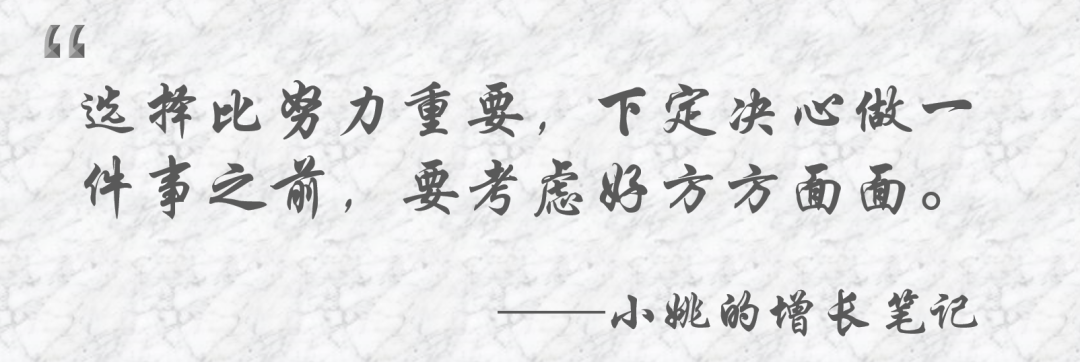 “
选择比努力重要，下定决心做一
件事之前，要考虑好方方面面。
——小姚的增长笔记